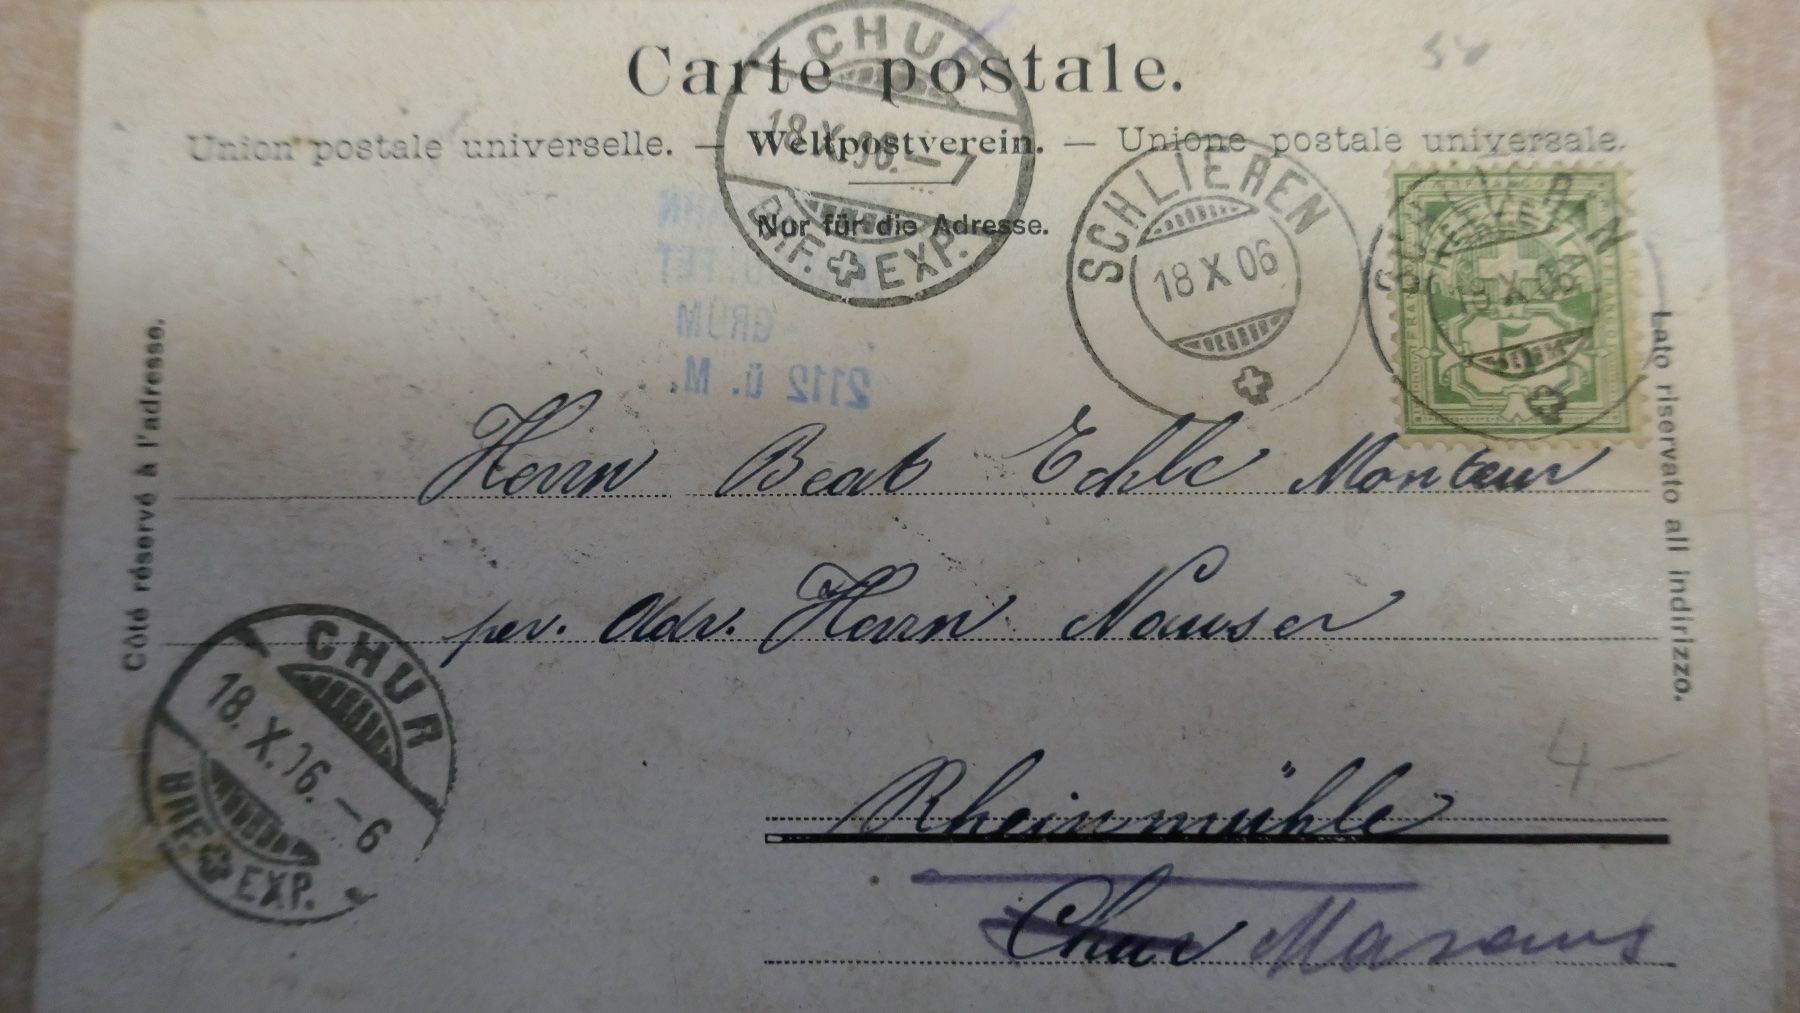 54
Carte postale.
Union postale universelle. — Weltpostverein. — Unione postale universale.
Nur für die Adresse.
CHUR
18. X. 06. — 7
BRF. EXP.
SCHLIEREN
18 X 06
SCHLIEREN
18 X 06
HELVETIA
FRANCO
5
GRUM
2112 ü. M.
Côté réservé à l'adresse.
Lato riservato all indirizzo.
Herrn Beat Echle Monteur
per. Adr. Herrn Nauser
Rheinmühle
Chur Masans
CHUR
18. X. 06. — 6
BRF. EXP.
4 —